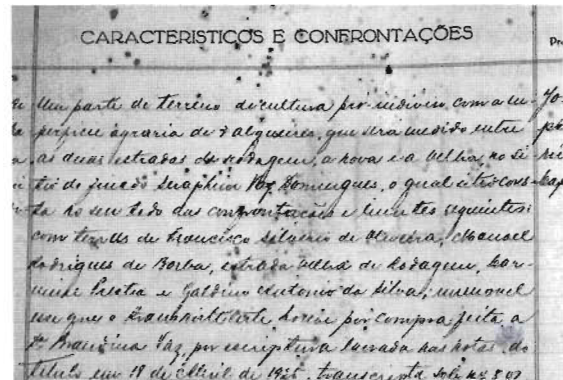 CARACTERISTICOS E CONFRONTAÇÕES
Uma parte de terreno de cultura pro-indiviso, com a su-
perficie agraria de alqueires, que será medido entre
as duas estradas de rodagem, a nova e a velha, no si-
tio do Seraphim Vaz Domingues, o qual sitio cons-
ta no seu todo das confrontações e seguintes:
com terras de Francisco Silverio de Oliveira, Manoel
Rodrigues de Borba, estrada velha de rodagem, Car-
Prestia e Galdino Antonio da Silva, immovel
em que o transmittente houve por compra feita a
Vaz, por escriptura lavrada nas notas do
titulo em 19 de Abril de 1925, transcripta sob nº